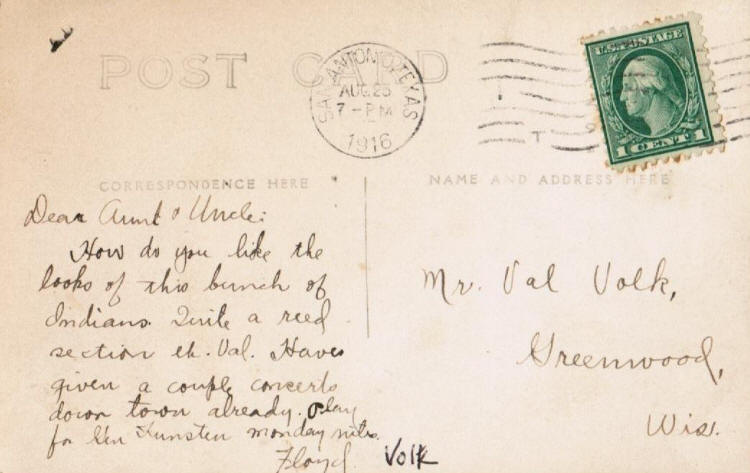 POST CARD
SAN ANTONIO, TEXAS
AUG 25
7-PM
1916
U.S. POSTAGE
1 CENT 1
CORRESPONDENCE HERE
NAME AND ADDRESS HERE
Dear Aunt & Uncle:
How do you like the
looks of this bunch of
Indians. Quite a reed
section eh. Val. Have
given a couple concerts
down town already. Play
for Gen Funston monday nite.
Floyd Volk
Mr. Val Volk,
Greenwood,
Wis.